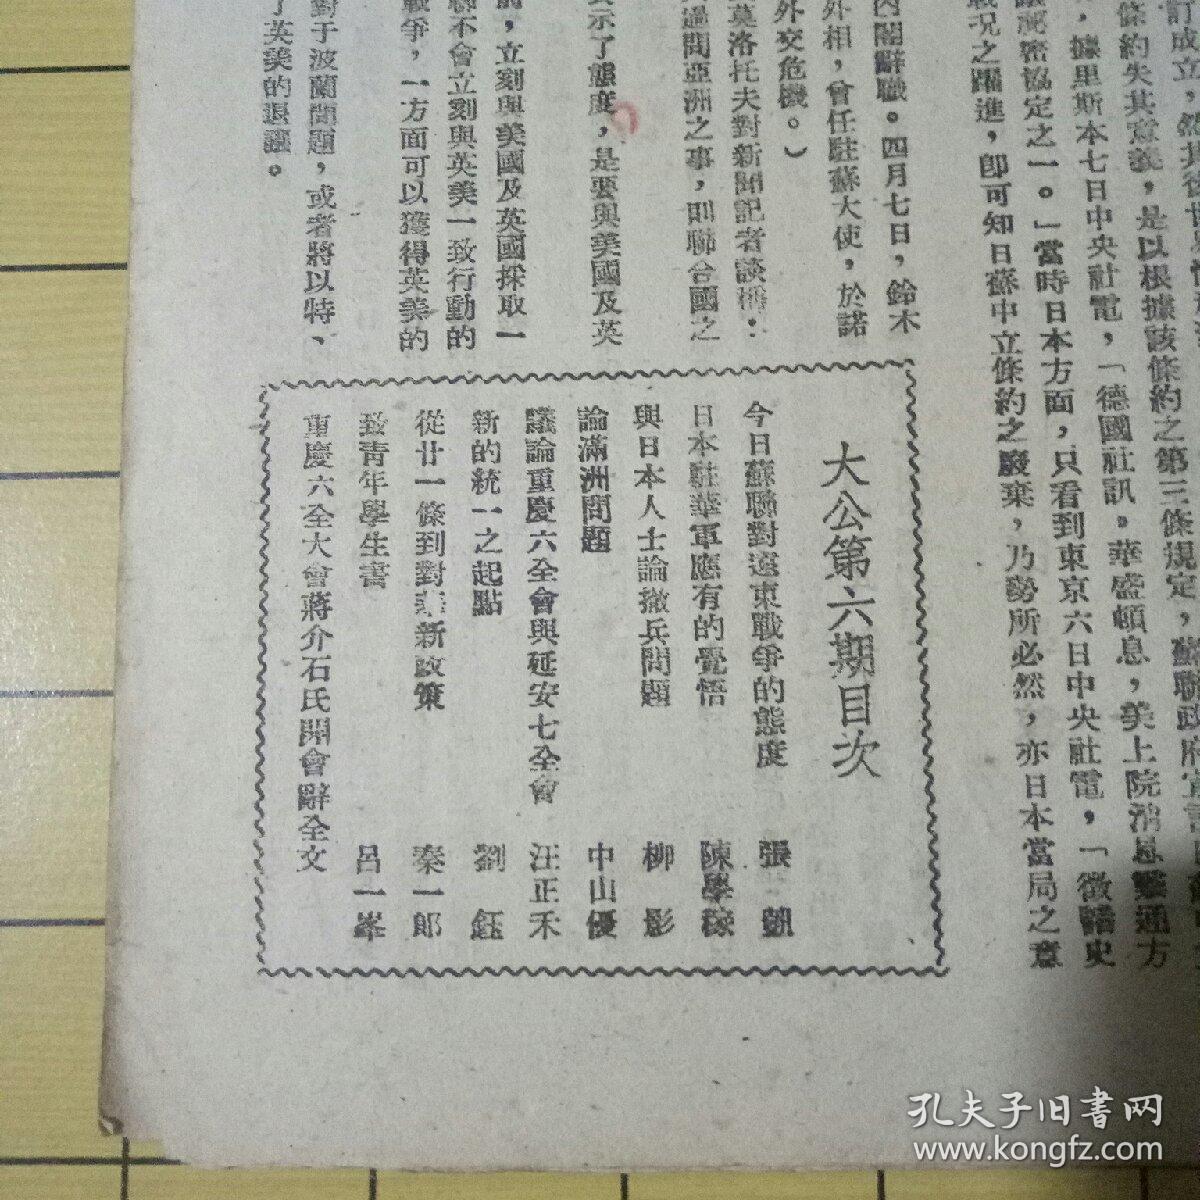 訂成立，然其後世界情
條約失其意義，是以根據該條約之第三條規定，蘇聯政府宣言
，據里斯本七日中央社電，「德國社訊。華盛頓息，美上院消息靈通方
讓祕密協定之一。」當時日本方面，只看到東京六日中央社電，「徵諸史
戰况之躍進，卽可知日蘇中立條約之廢棄，乃勢所必然，亦日本當局之意
內閣辭職。四月七日，鈴木
外相，曾任駐蘇大使，於諾
外交危機。）
莫洛托夫對新聞記者談稱：
過問亞洲之事，則聯合國之
示了態度，是要與美國及英
前，立刻與美國及英國採取一
聯不會立刻與英美一致行動的
戰爭，一方面可以獲得英美的
對于波蘭問題，或者將以特、
了英美的退讓。
大公第六期目次
今日蘇聯對遠東戰爭的態度　張
日本駐華軍應有的覺悟　陳學稼
與日本人士論撤兵問題　柳　影
論滿洲問題　中山優
議論重慶六全會與延安七全會　汪正禾
新的統一之起點　劉　鈺
從廿一條到對華新政策　秦一郎
致青年學生書　呂一峯
重慶六全大會蔣介石氏開會辭全文
孔夫子旧書网
www.kongfz.com